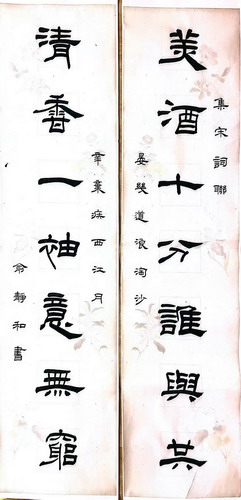 美酒十分誰與共
集宋詞聯
晏幾道浪淘沙
清香一袖意無窮
辛棄疾西江月
俞靜和書